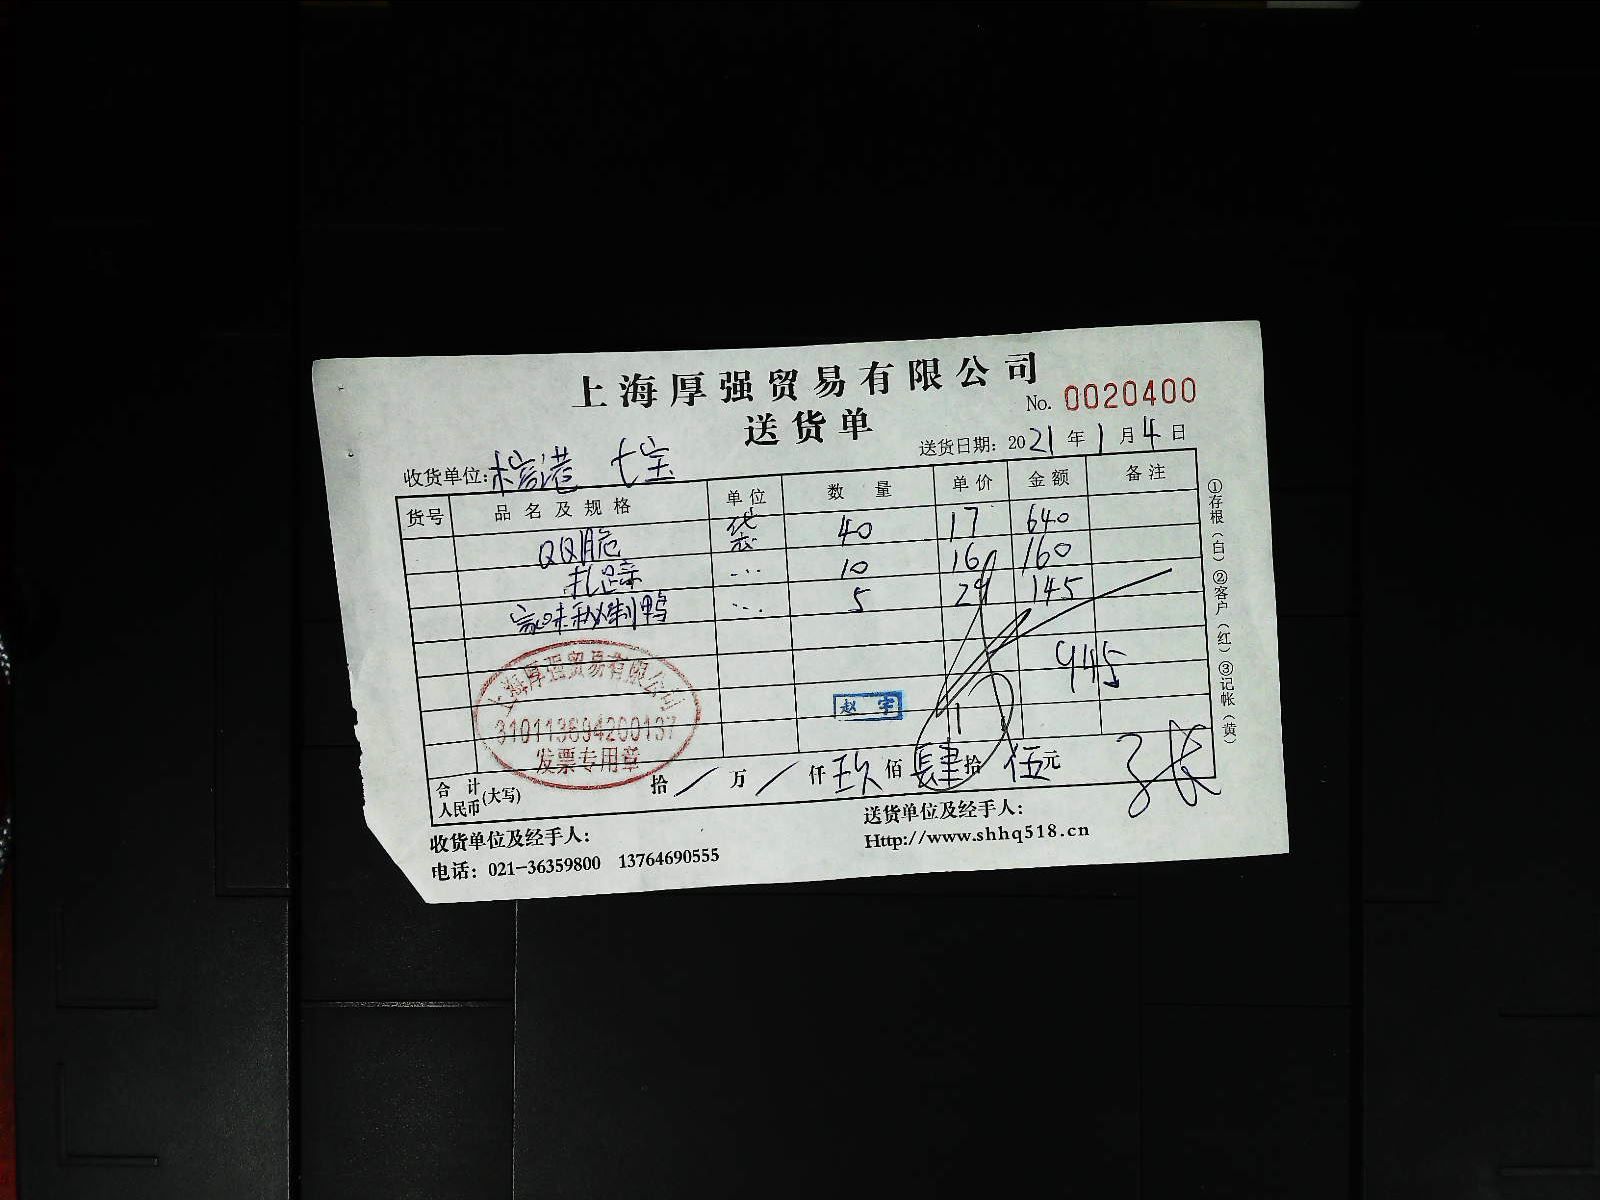 上海厚强贸易有限公司
No. 0020400
送货单
送货日期: 2021年1月4日
收货单位: 七宝
货号 品名及规格 单位 数量 单价 金额 备注
QQ脆 袋 40 17 640
扎蹄 ... 10 16 160
家味秘制鸭 ... 5 29 145
945
上海厚强贸易有限公司
310113694200137
发票专用章
赵宇
合计人民币(大写) 拾/万/仟玖佰肆拾伍元
收货单位及经手人:
送货单位及经手人:
电话: 021-36359800 13764690555
Http://www.shhq518.cn
①存根(白)②客户(红)③记帐(黄)